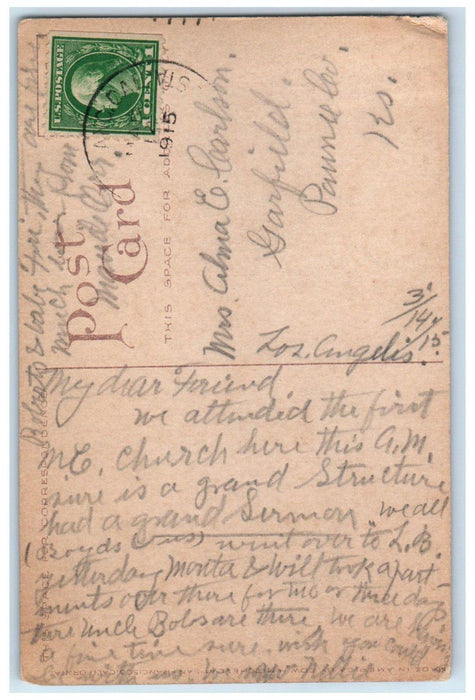 U.S. POSTAGE
1 CENT 1
1915
Post
Card
THIS SPACE FOR
Mrs. Alma E. Carlson.
Garfield.
Pawnee Co.
Ks.
3/14/15
Los. Angelis.
My dear Friend
we attended the first
M.E. Church here this A.M.
sure is a grand Structure
had a grand Sermon we all
(Boyds & us) went over to L.B.
yesterday Monta & Will took apart-
ments over there for two or three days
there Uncle Bobs are there. we are having
a fine time sure. wish you could
Roberta & baby
much